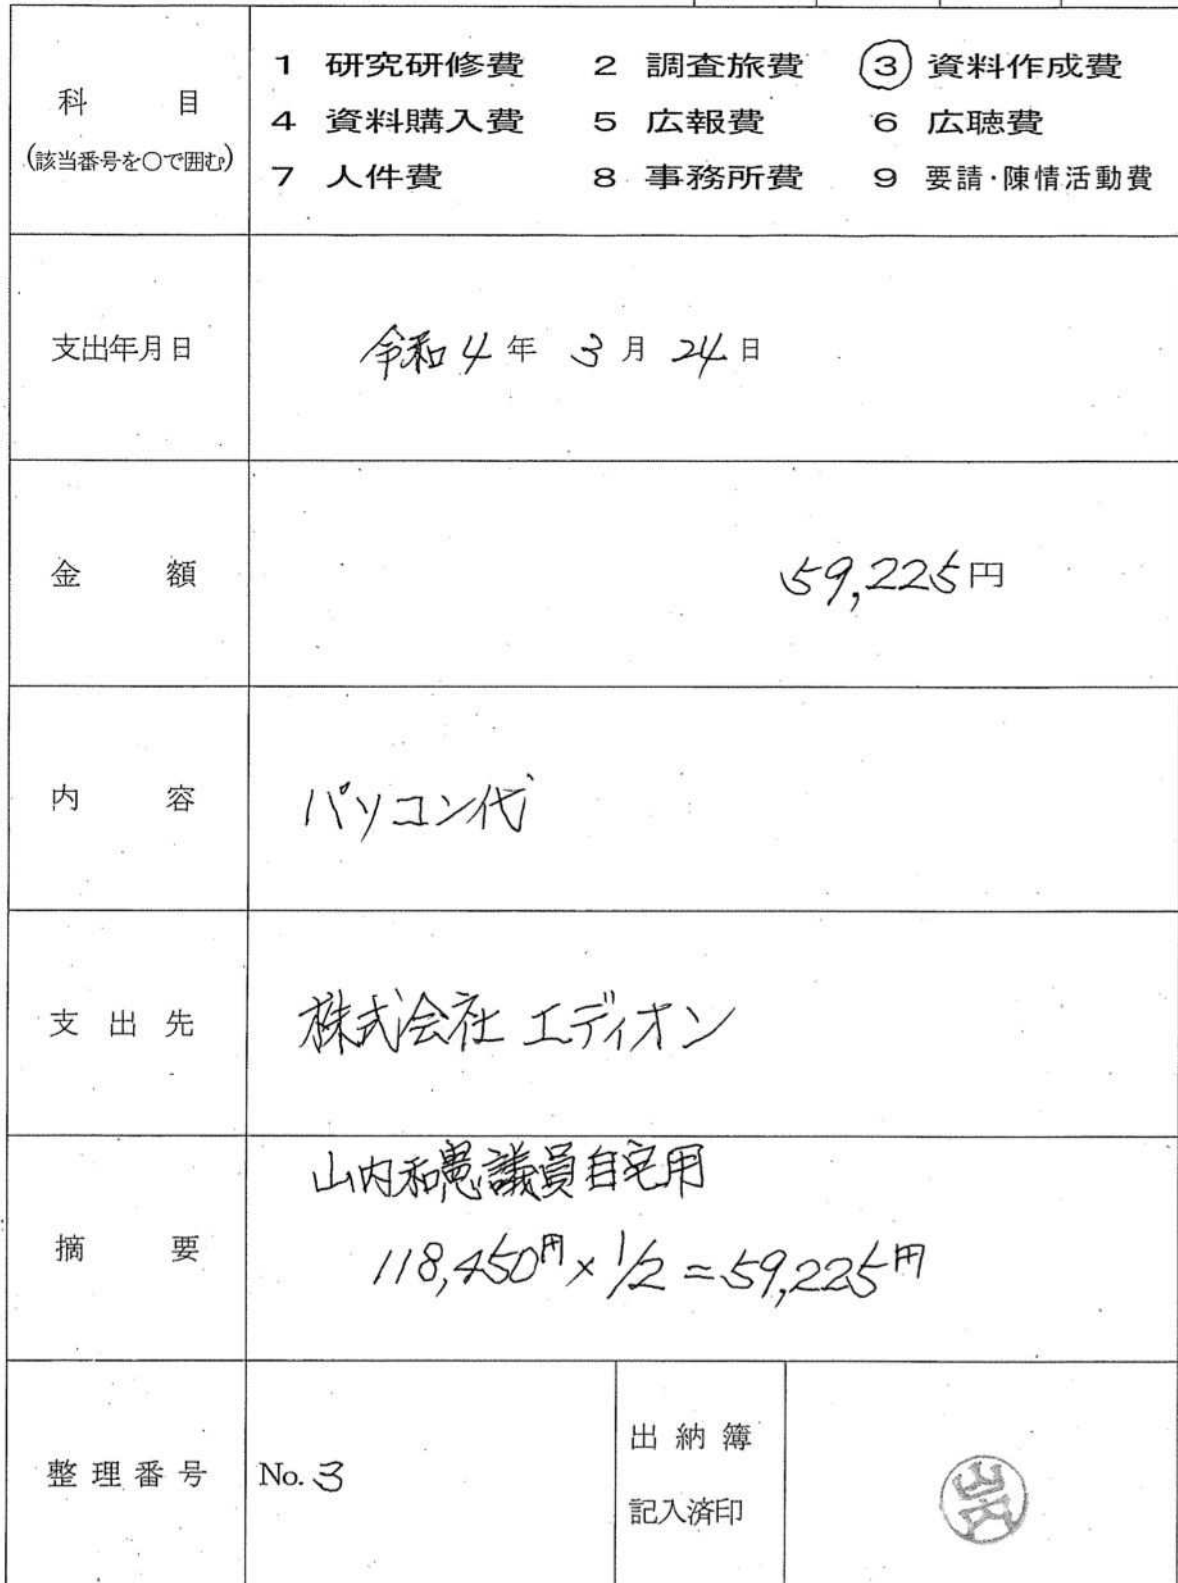 科目
(該当番号を○で囲む)
1 研究研修費 2 調査旅費 3 資料作成費
4 資料購入費 5 広報費 6 広聴費
7 人件費 8 事務所費 9 要請・陳情活動費
支出年月日
令和4年 3月 24日
金額
59,225円
内容
パソコン代
支出先
株式会社 エディオン
摘要
山内和憲議員自宅用
118,450円×1/2=59,225円
整理番号
No. 3
出納簿
記入済印